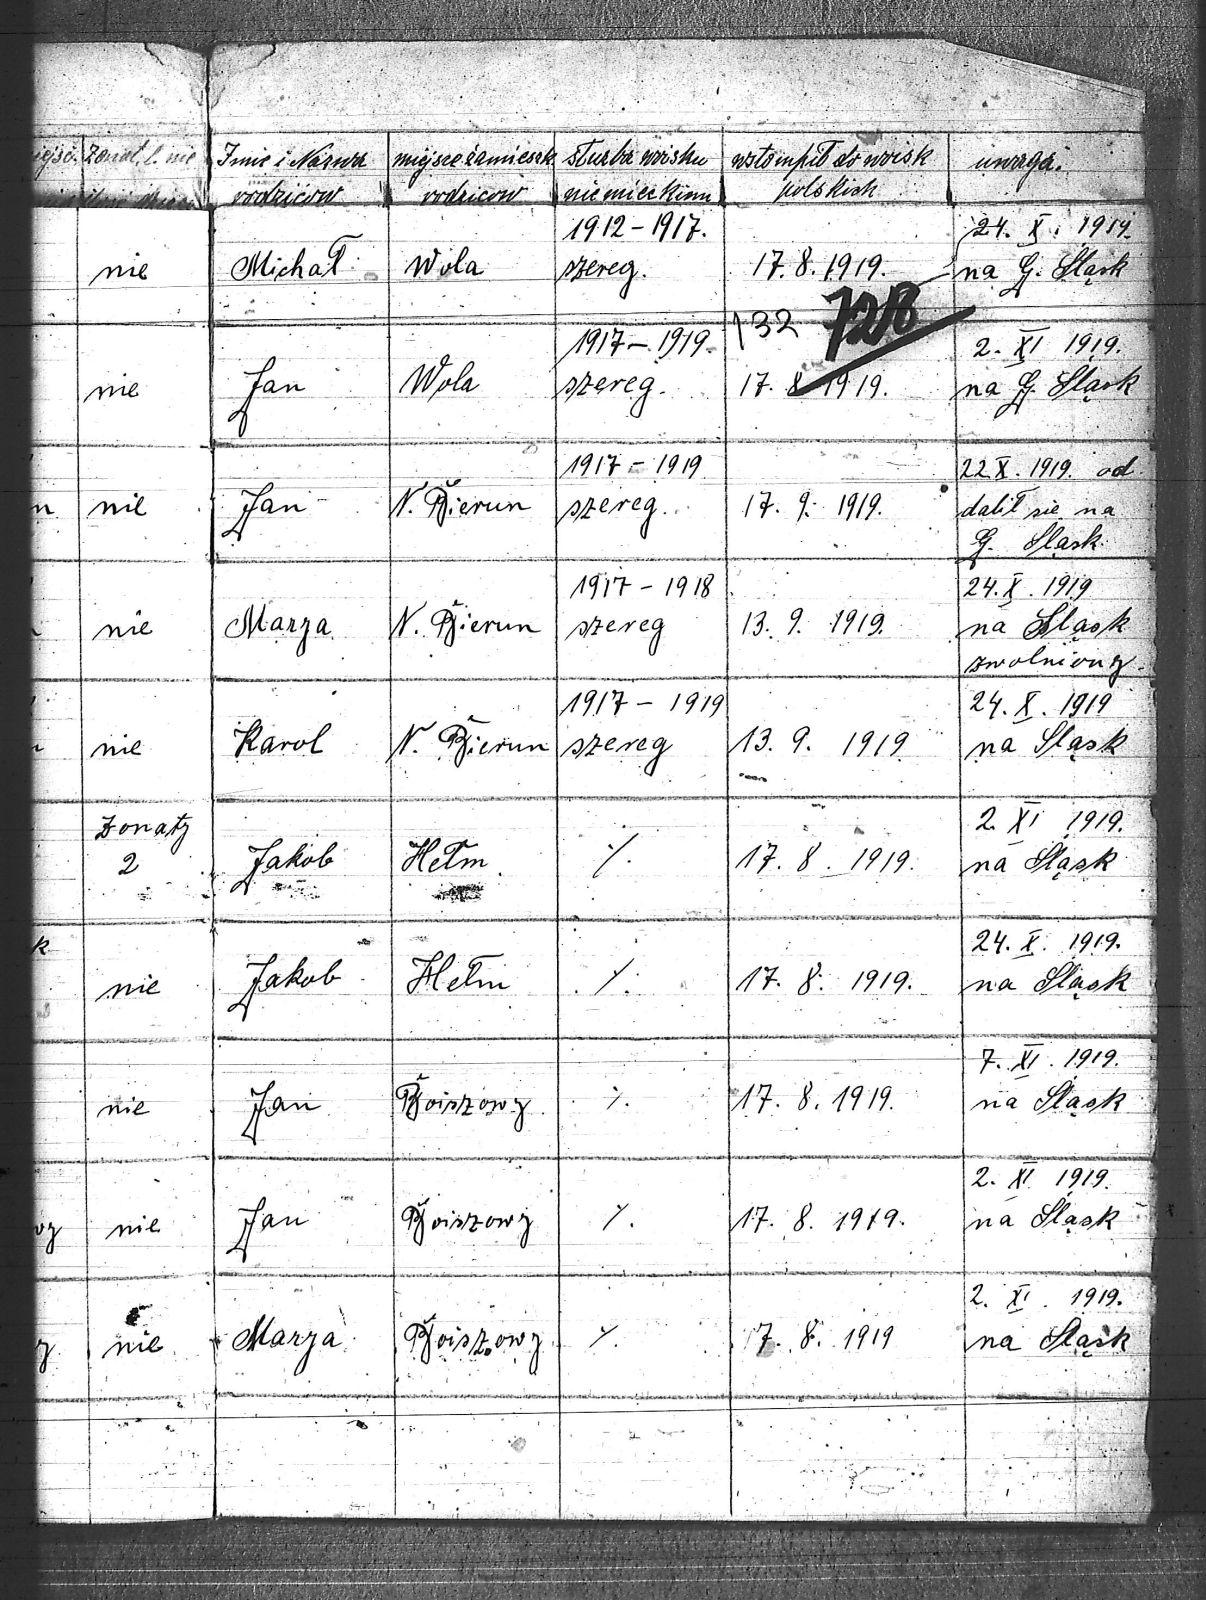 żonat. l. nie
Imie i Nazwa
rodziców
miejsce zamieszk
rodziców
służba woisku
niemieckim
wstompił do woisk
polskich
uwaga.
1912 - 1917.
24. X. 1919.
nie Michał Wola szereg. 17. 8. 1919. na G. Sląsk
132 728
1917 - 1919.
2. XI 1919.
nie Jan Wola szereg. 17. 8 1919. na G. Sląsk
1917 - 1919
22 X. 1919. od
n nie Jan N. Bierun szereg. 17. 9. 1919. dalił sie na
G. Sląsk
1917 - 1918
24. X. 1919
nie Marya N. Bierun szereg 13. 9. 1919. na Sląsk
zwolniony.
1917 - 1919
24. X. 1919
nie Karol N. Bierun szereg 13. 9. 1919 na Sląsk
żonaty
2. XI 1919.
2 Jakob Hełm ·/. 17. 8. 1919. na Sląsk
k
24. X. 1919.
nie Jakob Hełm ·/. 17. 8. 1919. na Sląsk
7. XI. 1919.
nie Jan Boiszowy ·/. 17. 8. 1919. na Sląsk
2. XI 1919.
wy nie Jan Boiszowy ·/. 17. 8. 1919. na Sląsk
2. XI. 1919.
y nie Marya Boiszowy ·/. 17. 8. 1919 na Sląsk